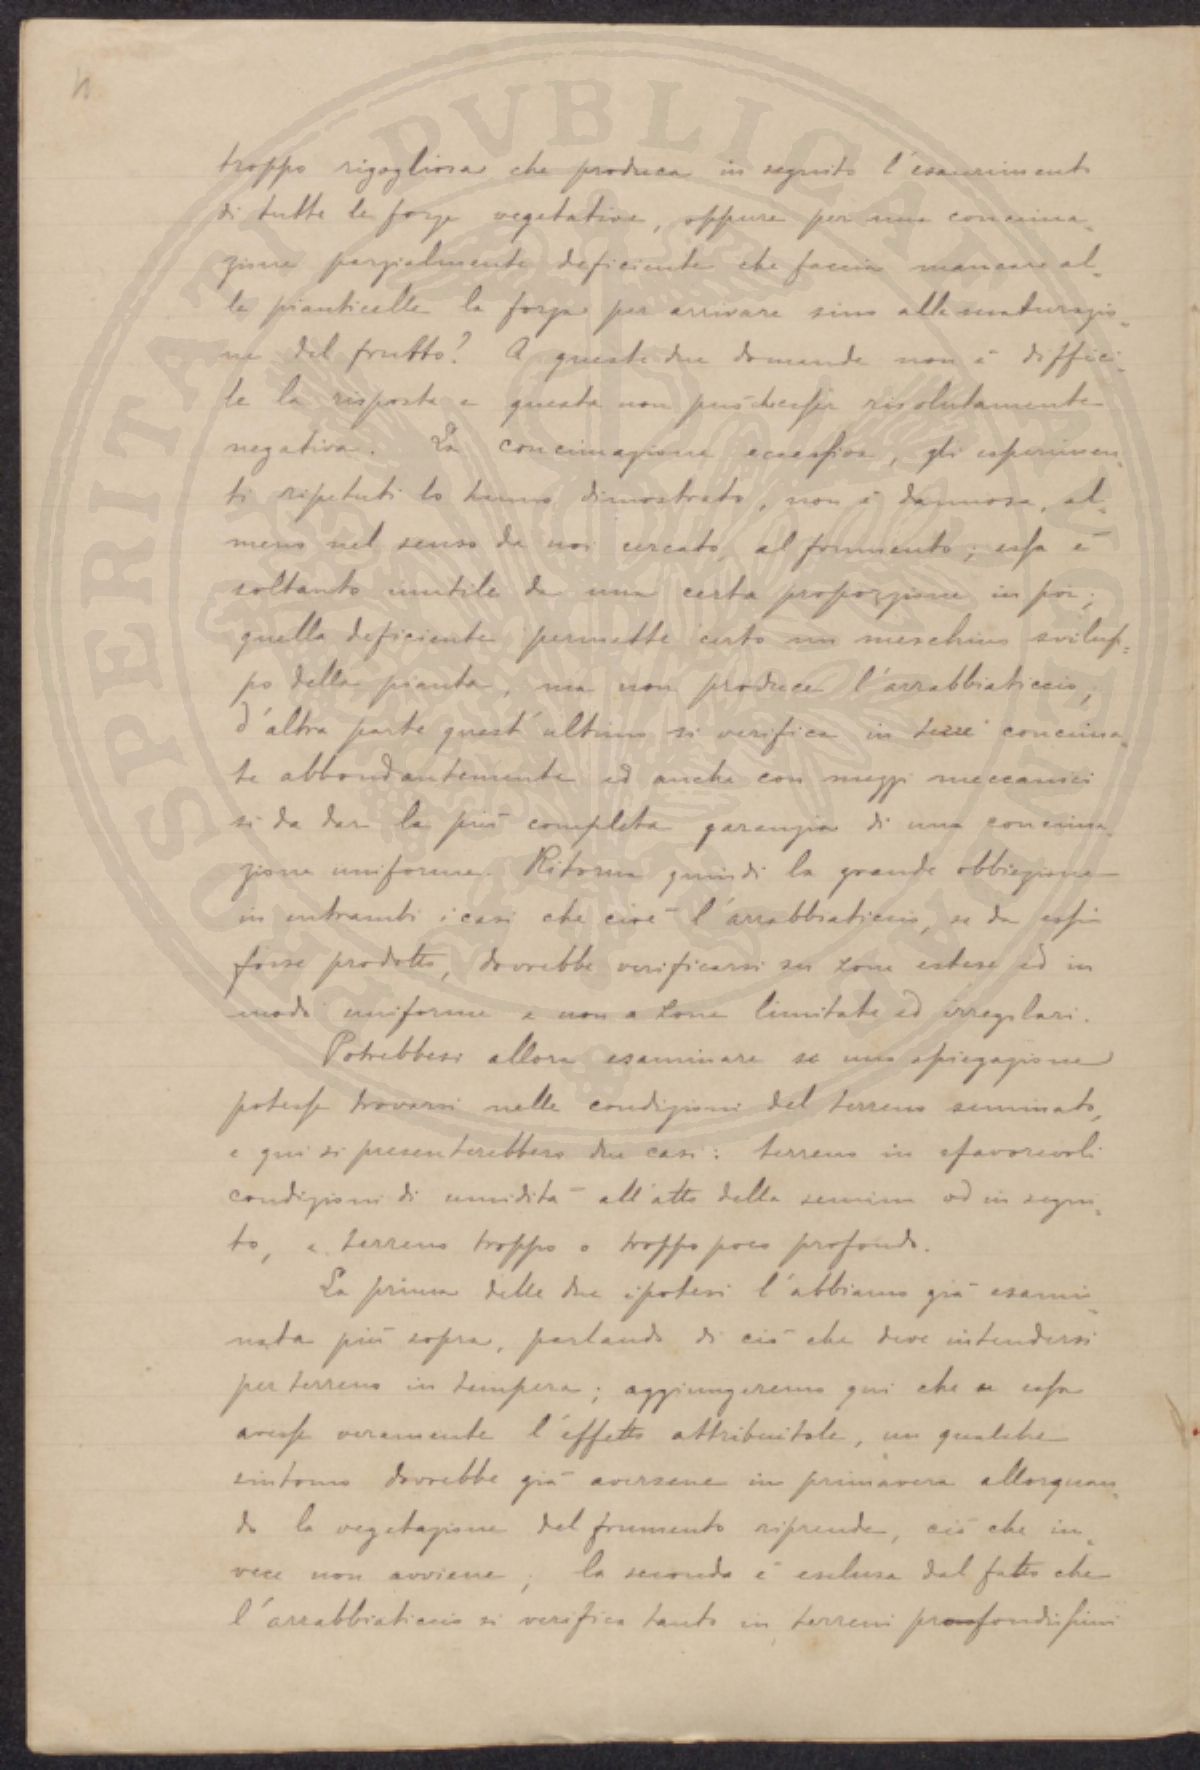 troppo rigogliosa che produca in seguito l'esaurimento
di tutte le forze vegetative, oppure per una concima-
zione parzialmente deficiente che faccia mancare al-
le pianticelle la forza per arrivare sino alla maturazio-
ne del frutto? A queste due domande non è diffici-
le la risposta e questa non può che esser risolutamente
negativa. La concimazione eccessiva, gli esperimen-
ti ripetuti lo hanno dimostrato, non è dannosa, al-
meno nel senso da noi cercato, al frumento; essa è
soltanto inutile da una certa proporzione in poi;
quella deficiente permette certo un meschino svilup-
po della pianta, ma non produce l'arrabbiaticcio;
d'altra parte quest'ultimo si verifica in terre concima-
te abbondantemente ed anche con mezzi meccanici
sì da dar la più completa garanzia di una concima-
zione uniforme. Ritorna quindi la grande obbiezione
in entrambi i casi che cioè l'arrabbiaticcio, se da essi
fosse prodotto, dovrebbe verificarsi su zone estese ed in
modo uniforme e non a zone limitate ed irregolari.
Potrebbesi allora esaminare se una spiegazione
potesse trovarsi nelle condizioni del terreno seminato,
e qui si presenterebbero due casi: terreno in sfavorevoli
condizioni di umidità all'atto della semina od in segui-
to, e terreno troppo o troppo poco profondo.
La prima delle due ipotesi l'abbiamo già esami-
nata più sopra, parlando di ciò che deve intendersi
per terreno in tempera; aggiungeremo qui che se essa
avesse veramente l'effetto attribuitole, un qualche
sintomo dovrebbe già aversene in primavera allorquan-
do la vegetazione del frumento riprende, ciò che in-
vece non avviene; la seconda è esclusa dal fatto che
l'arrabbiaticcio si verifica tanto in terreni profondissimi
PVBLICAE
SPERITATI